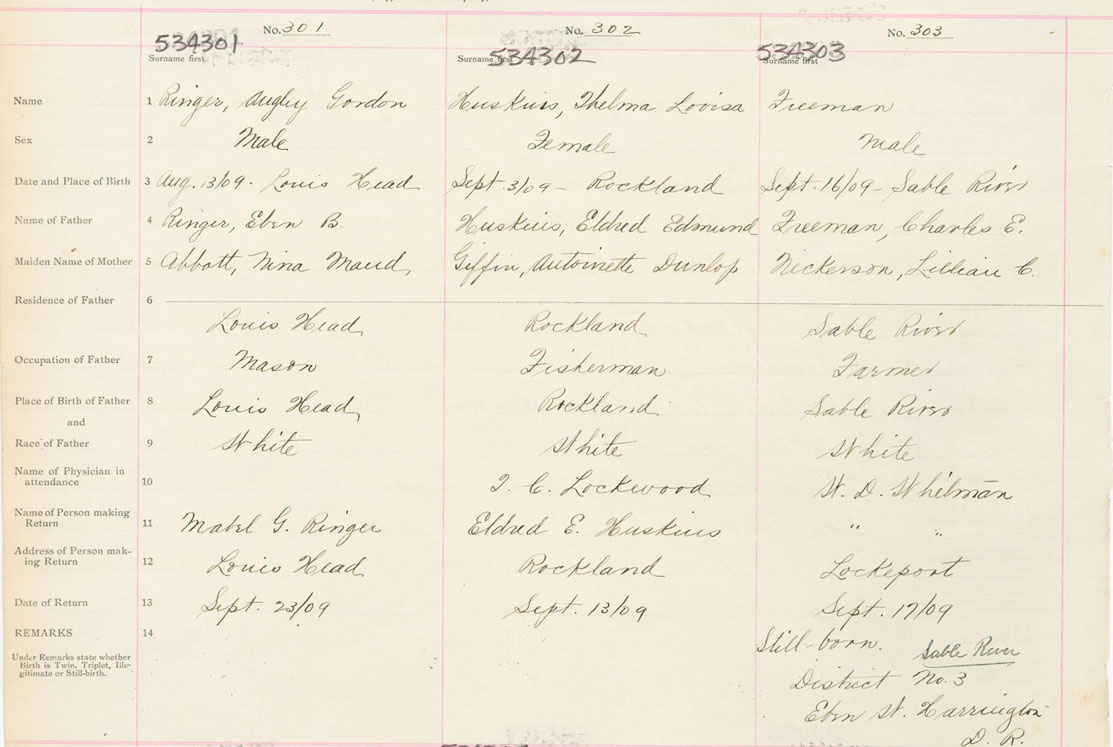 No. 301 No. 302 No. 303
534301 534302 534303
Surname first Surname first Surname first
Name 1 Ringer, Augley Gordon Huskins, Thelma Lovisa Freeman
Sex 2 Male Female Male
Date and Place of Birth 3 Aug. 13/09 - Louis Head Sept 3/09 - Rockland Sept. 16/09 - Sable River
Name of Father 4 Ringer, Eben B. Huskins, Eldred Edmund Freeman, Charles E.
Maiden Name of Mother 5 Abbott, Nina Maud Giffin, Antoinette Dunlop Nickerson, Lillian C.
Residence of Father 6
Louis Head Rockland Sable River
Occupation of Father 7 Mason Fisherman Farmer
Place of Birth of Father 8 Louis Head Rockland Sable River
and
Race of Father 9 White White White
Name of Physician in
attendance 10 T. C. Lockwood W. D. Whitman
Name of Person making
Return 11 Mabel G. Ringer Eldred E. Huskins " "
Address of Person mak-
ing Return 12 Louis Head Rockland Lockeport
Date of Return 13 Sept. 23/09 Sept. 13/09 Sept. 17/09
REMARKS 14 Still-born. Sable River
Under Remarks state whether
Birth is Twin, Triplet, Ille-
gitimate or Still-birth.
District No. 3
Eben W. Harrington
D. R.